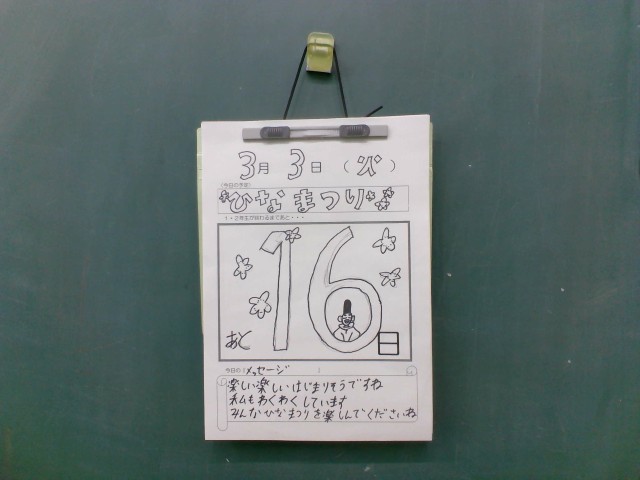 3月3日(火)
(今日の予定)
ひなまつり
1・2年生が終わるまであと・・・
あと16日
今日の メッセージ
楽しい楽しいはじまりそうですね
私もわくわくしています
みんなひなまつりを楽しんでくださいね